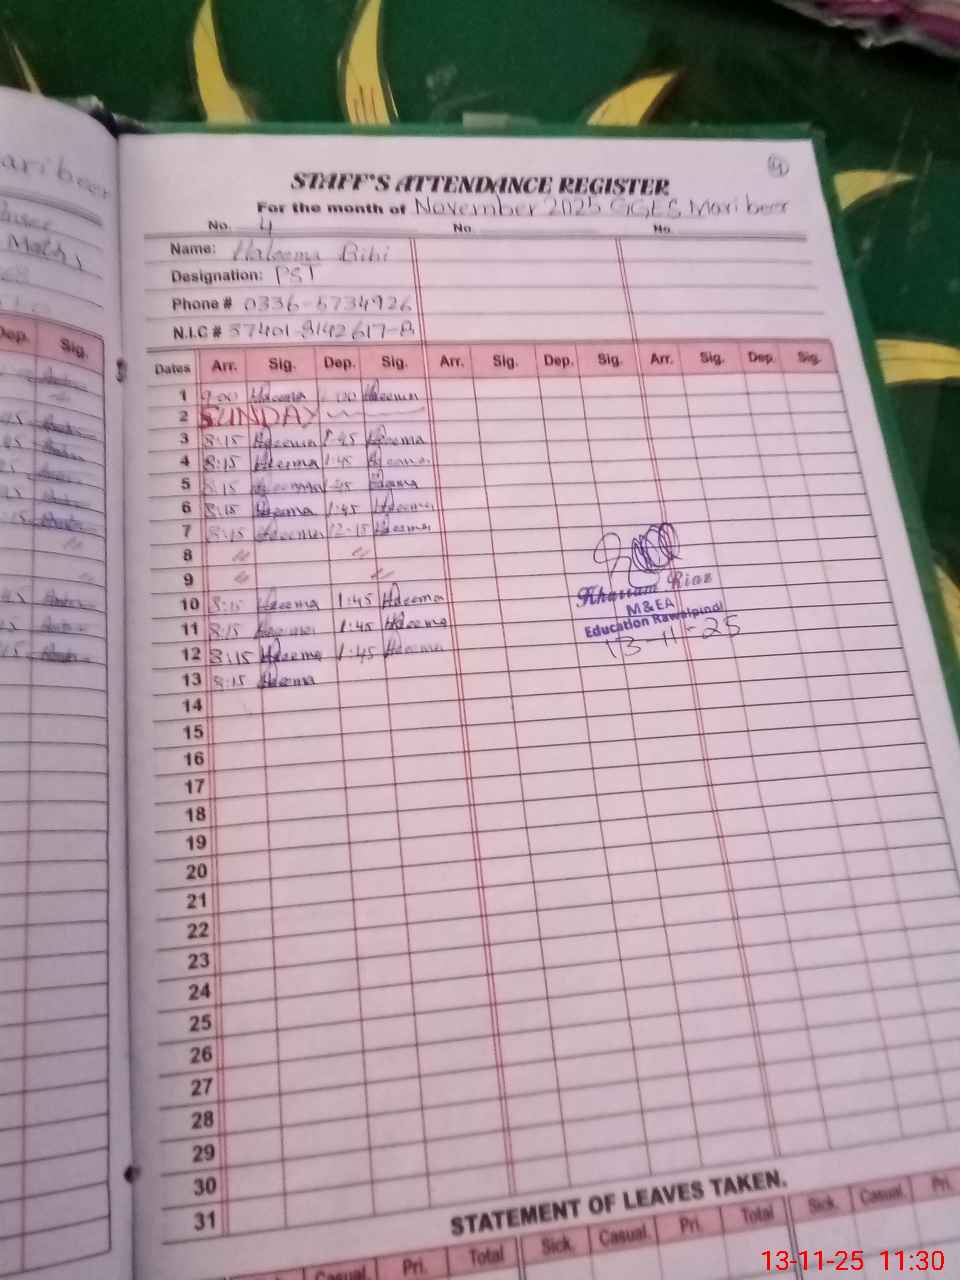 4
STAFF'S ATTENDANCE REGISTER
For the month of November 2025 GGES Mari beer
No. 4 No. No.
Name: Haleema Bibi
Designation: PST
Phone # 0336-5734926
N.I.C # 37401-8142617-8
Dates Arr. Sig. Dep. Sig. Arr. Sig. Dep. Sig. Arr. Sig. Dep. Sig.
1 9:00 Haleema 1:00 Haleema
2 SUNDAY
3 8:15 Haleema 1:45 Haleema
4 8:15 Haleema 1:45 Haleema
5 8:15 Haleema 1:45 Haleema
6 8:15 Haleema 1:45 Haleema
7 8:15 Haleema 12:15 Haleema
8 〃 〃
9 〃 〃
10 8:15 Haleema 1:45 Haleema
11 8:15 Haleema 1:45 Haleema
12 8:15 Haleema 1:45 Haleema
13 8:15 Haleema
Khurram Riaz
M&EA
Education Rawalpindi
13-11-25
14
15
16
17
18
19
20
21
22
23
24
25
26
27
28
29
30
31
STATEMENT OF LEAVES TAKEN.
Casual. Pri. Total Sick. Casual. Pri. Total Sick. Casual. Pri.
Dep. Sig.
13-11-25 11:30